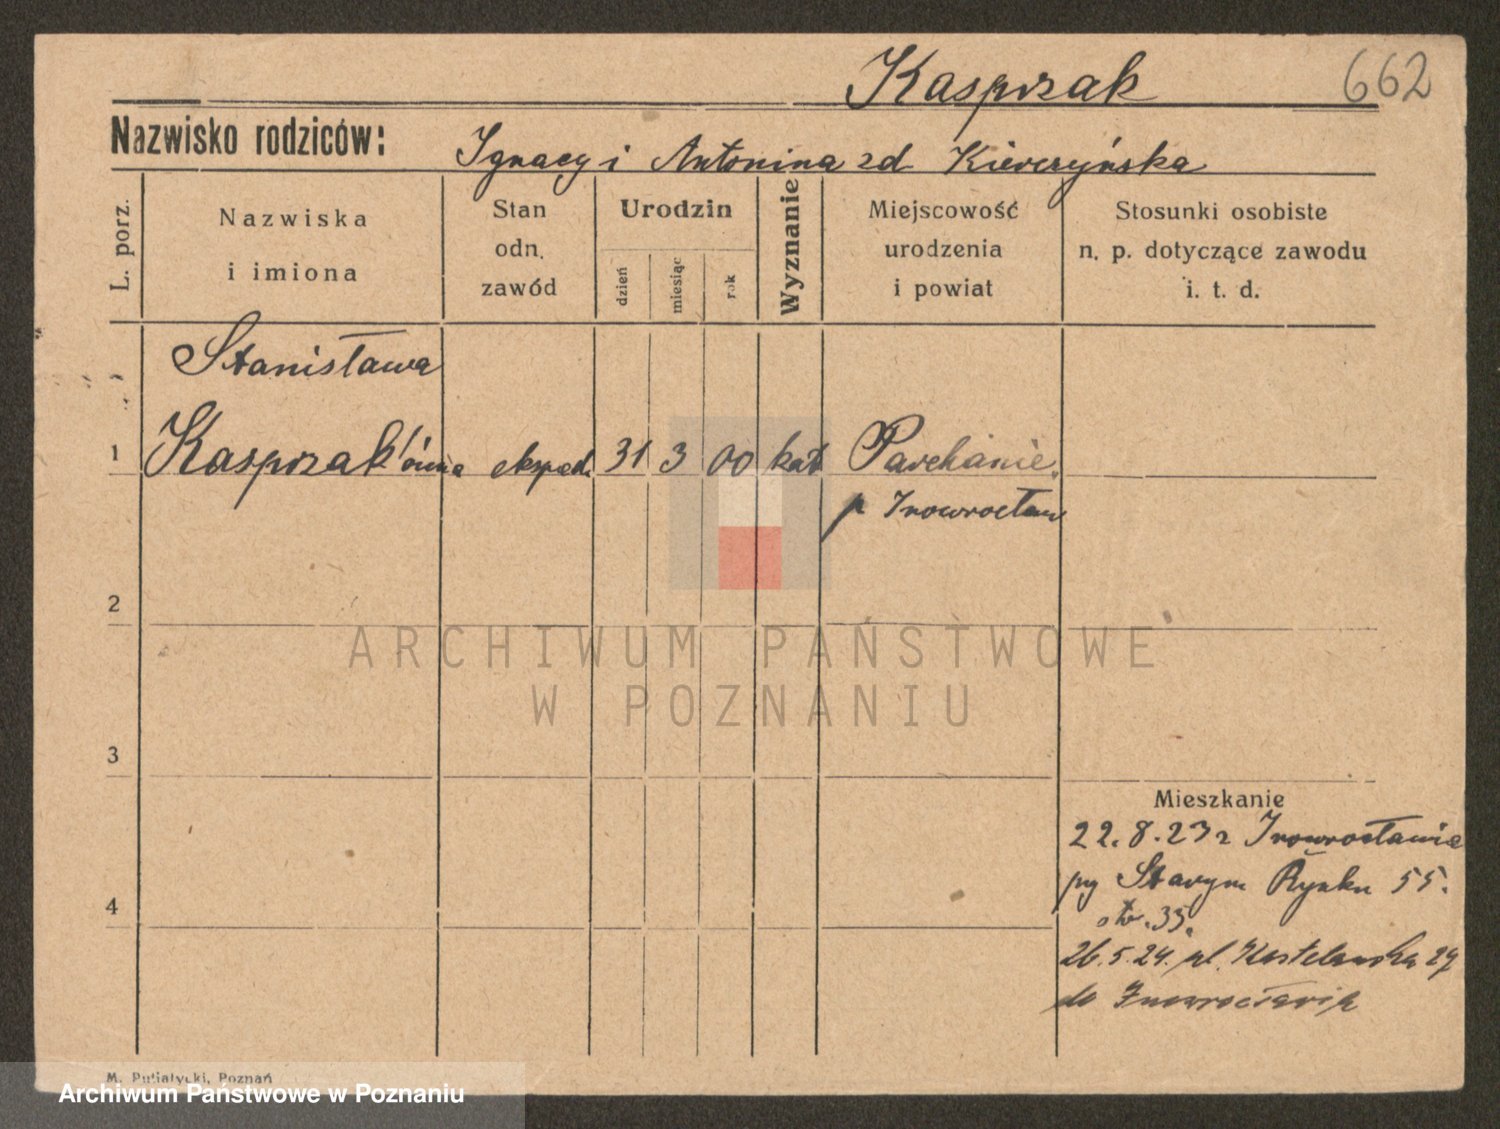 Kasprzak
662
Nazwisko rodziców: Ignacy i Antonina zd Kierczyńska
L. porz.
Nazwiska i imiona
Stan odn. zawód
Urodzin
dzień
miesiąc
rok
Wyznanie
Miejscowość urodzenia i powiat
Stosunki osobiste n. p. dotyczące zawodu i. t. d.
Stanisława
1 Kasprzak'ówna eksped. 31 3 00 kat Parchanie.
p Inowrocław
2
ARCHIWUM PAŃSTWOWE
W POZNANIU
3
Mieszkanie
22.8.23 z Inowrocławia
py Starym Rynku 55.
str. 35.
4
26.5.24. ul. 27
do Inowrocławia
M. Putiatycki, Poznań
Archiwum Państwowe w Poznaniu